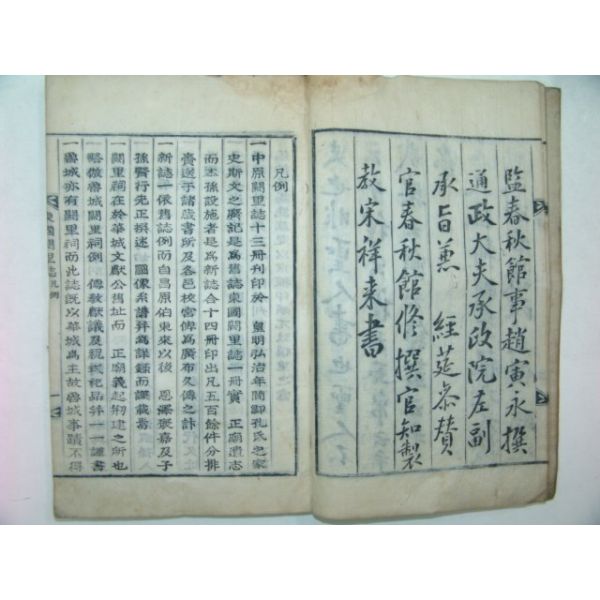 監春秋館事趙寅永撰
通政大夫承政院左副
承旨兼 經筵參贊
官春秋館修撰官知製
教宋祥来書
凡例
一中原闕里誌十三冊刊印於 皇明弘治年間御孔氏之家
史斯文之廣記是爲舊誌東國闕里誌一冊實 正廟遺志
而本孫設施者是爲新誌合十四冊印出凡五百餘件分排
賚送于諸處書所及各邑校宮傳爲廣布久傳之計
一新誌一依舊誌例而自昌原伯東來以後 恩 嘉及子
孫賢行先正撰述 圖像系譜并爲詳錄而謹載書
一闕里祠在於華城文獻公舊址而 正廟義起刱建之所也
略倣魯城闕里祠例 傳教獻議及祝式祀品並一一謹書
一魯城亦有闕里祠而此誌既以華城爲主故魯城事蹟不得
東國闕里誌凡例
一